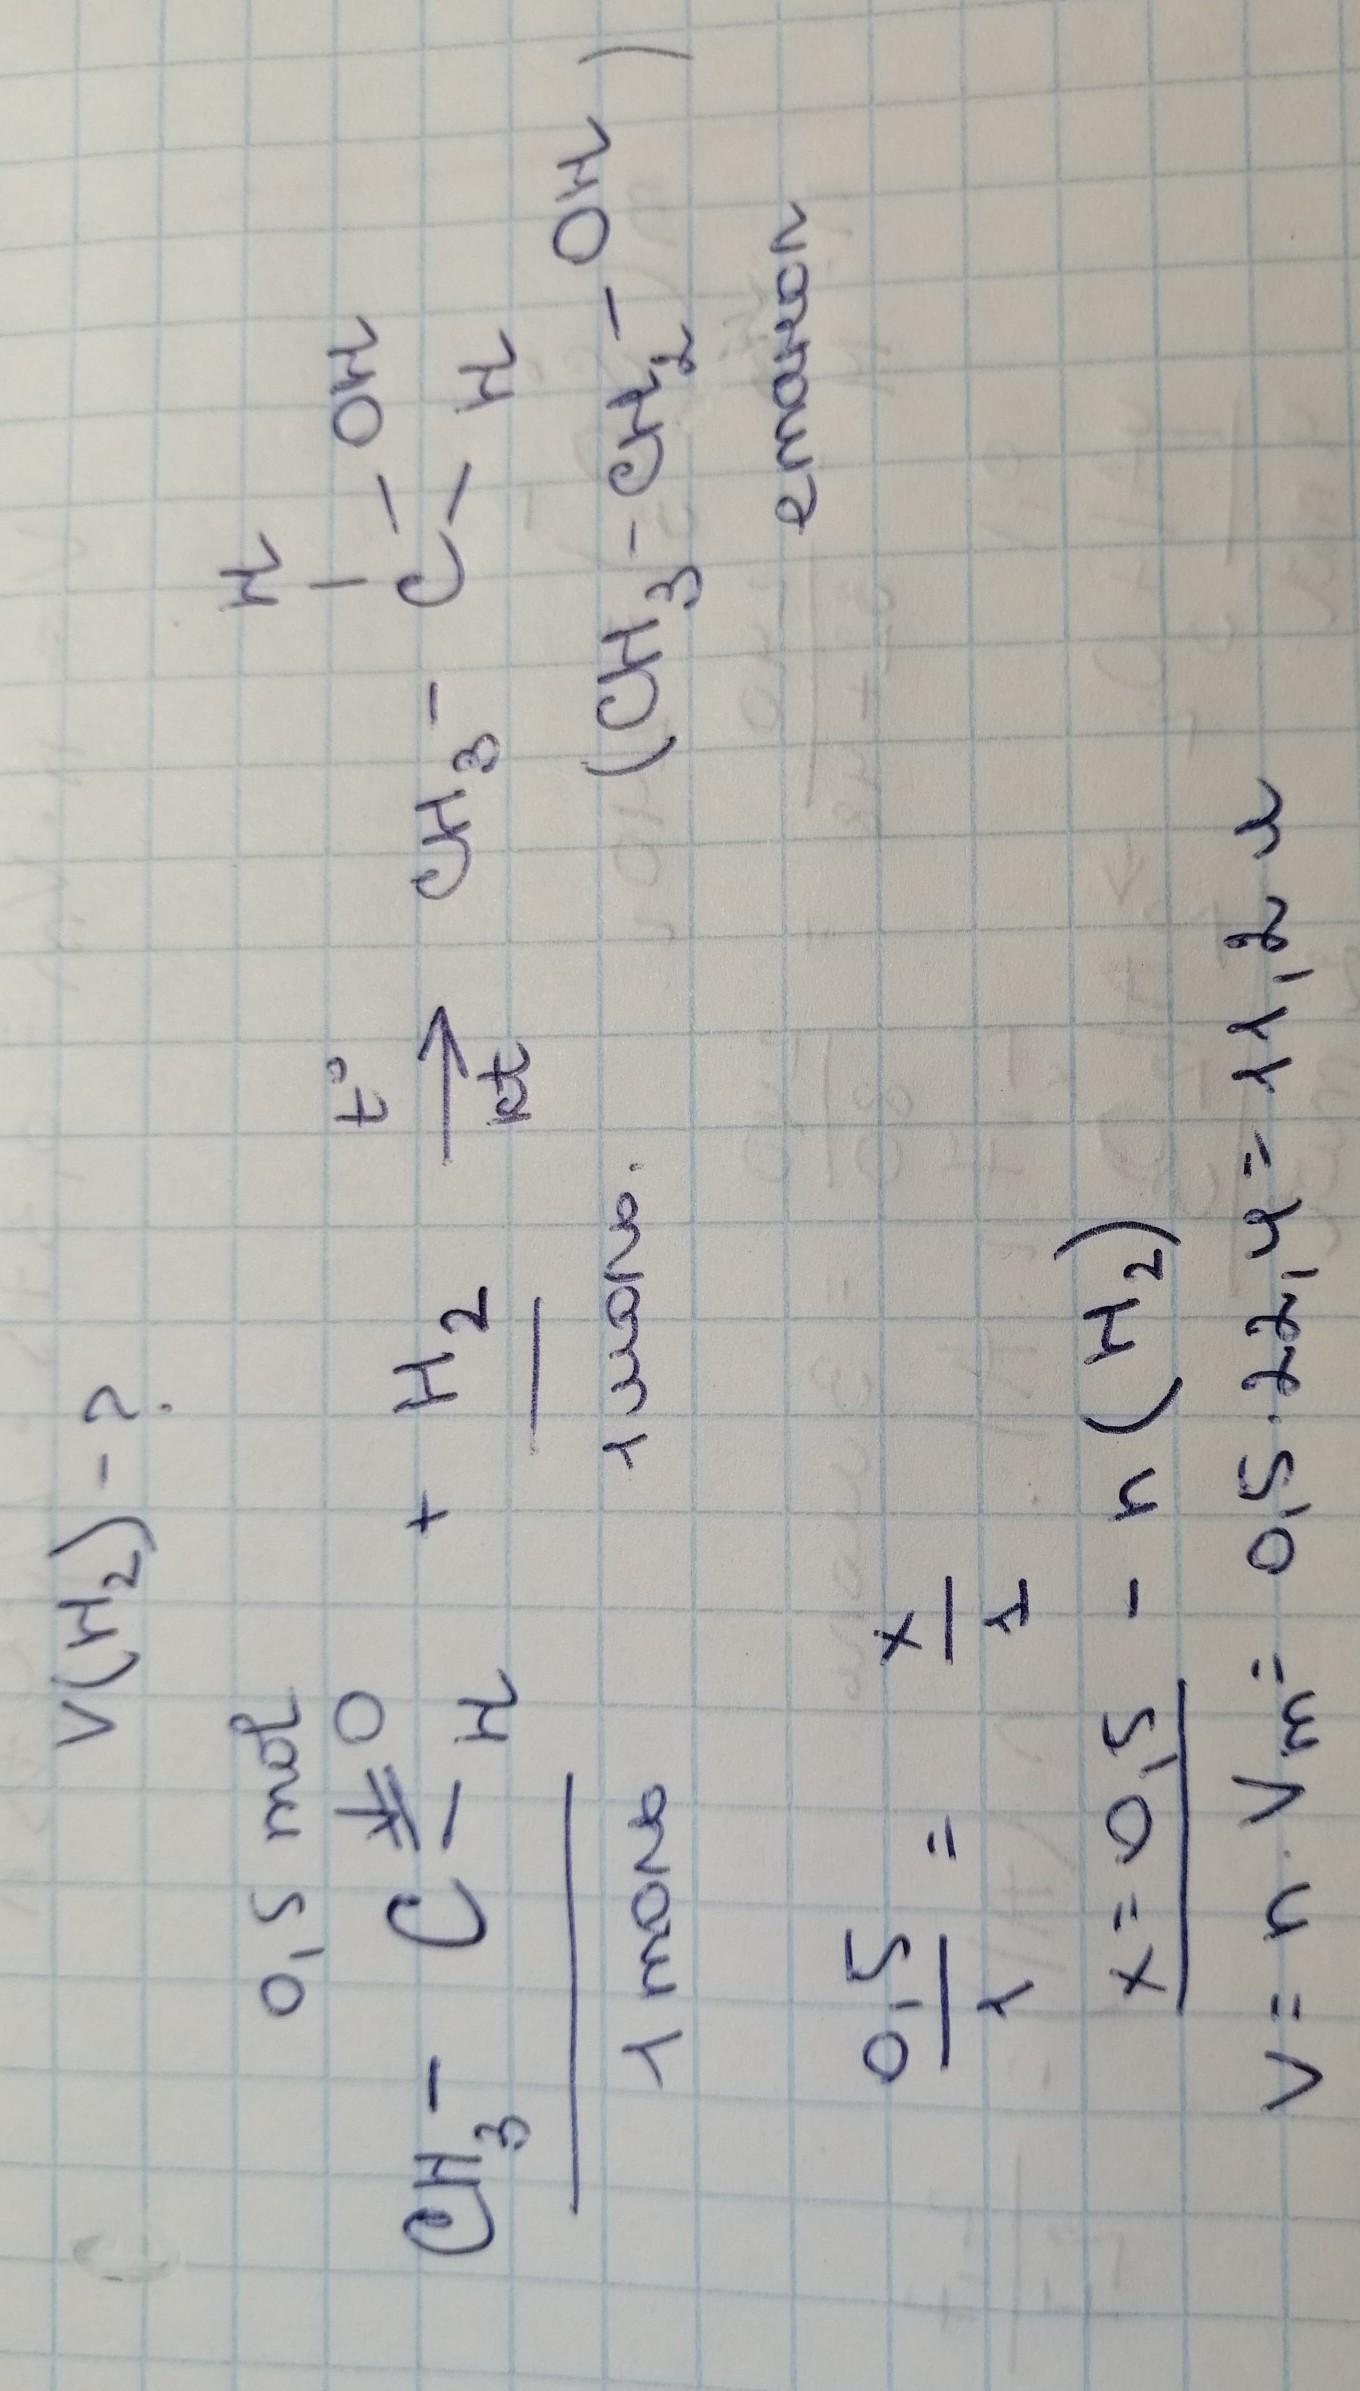 V(H₂) - ?
0,5 mol
H
CH₃ - C = O - H + H₂ → t° kt CH₃ - C - OH - H
1 моль
1 моль.
(CH₃ - CH₂ - OH)
етанол
0,5/1 = x/1
x = 0,5 - n(H₂)
V = n · Vm = 0,5 · 22,4 = 11,2 л